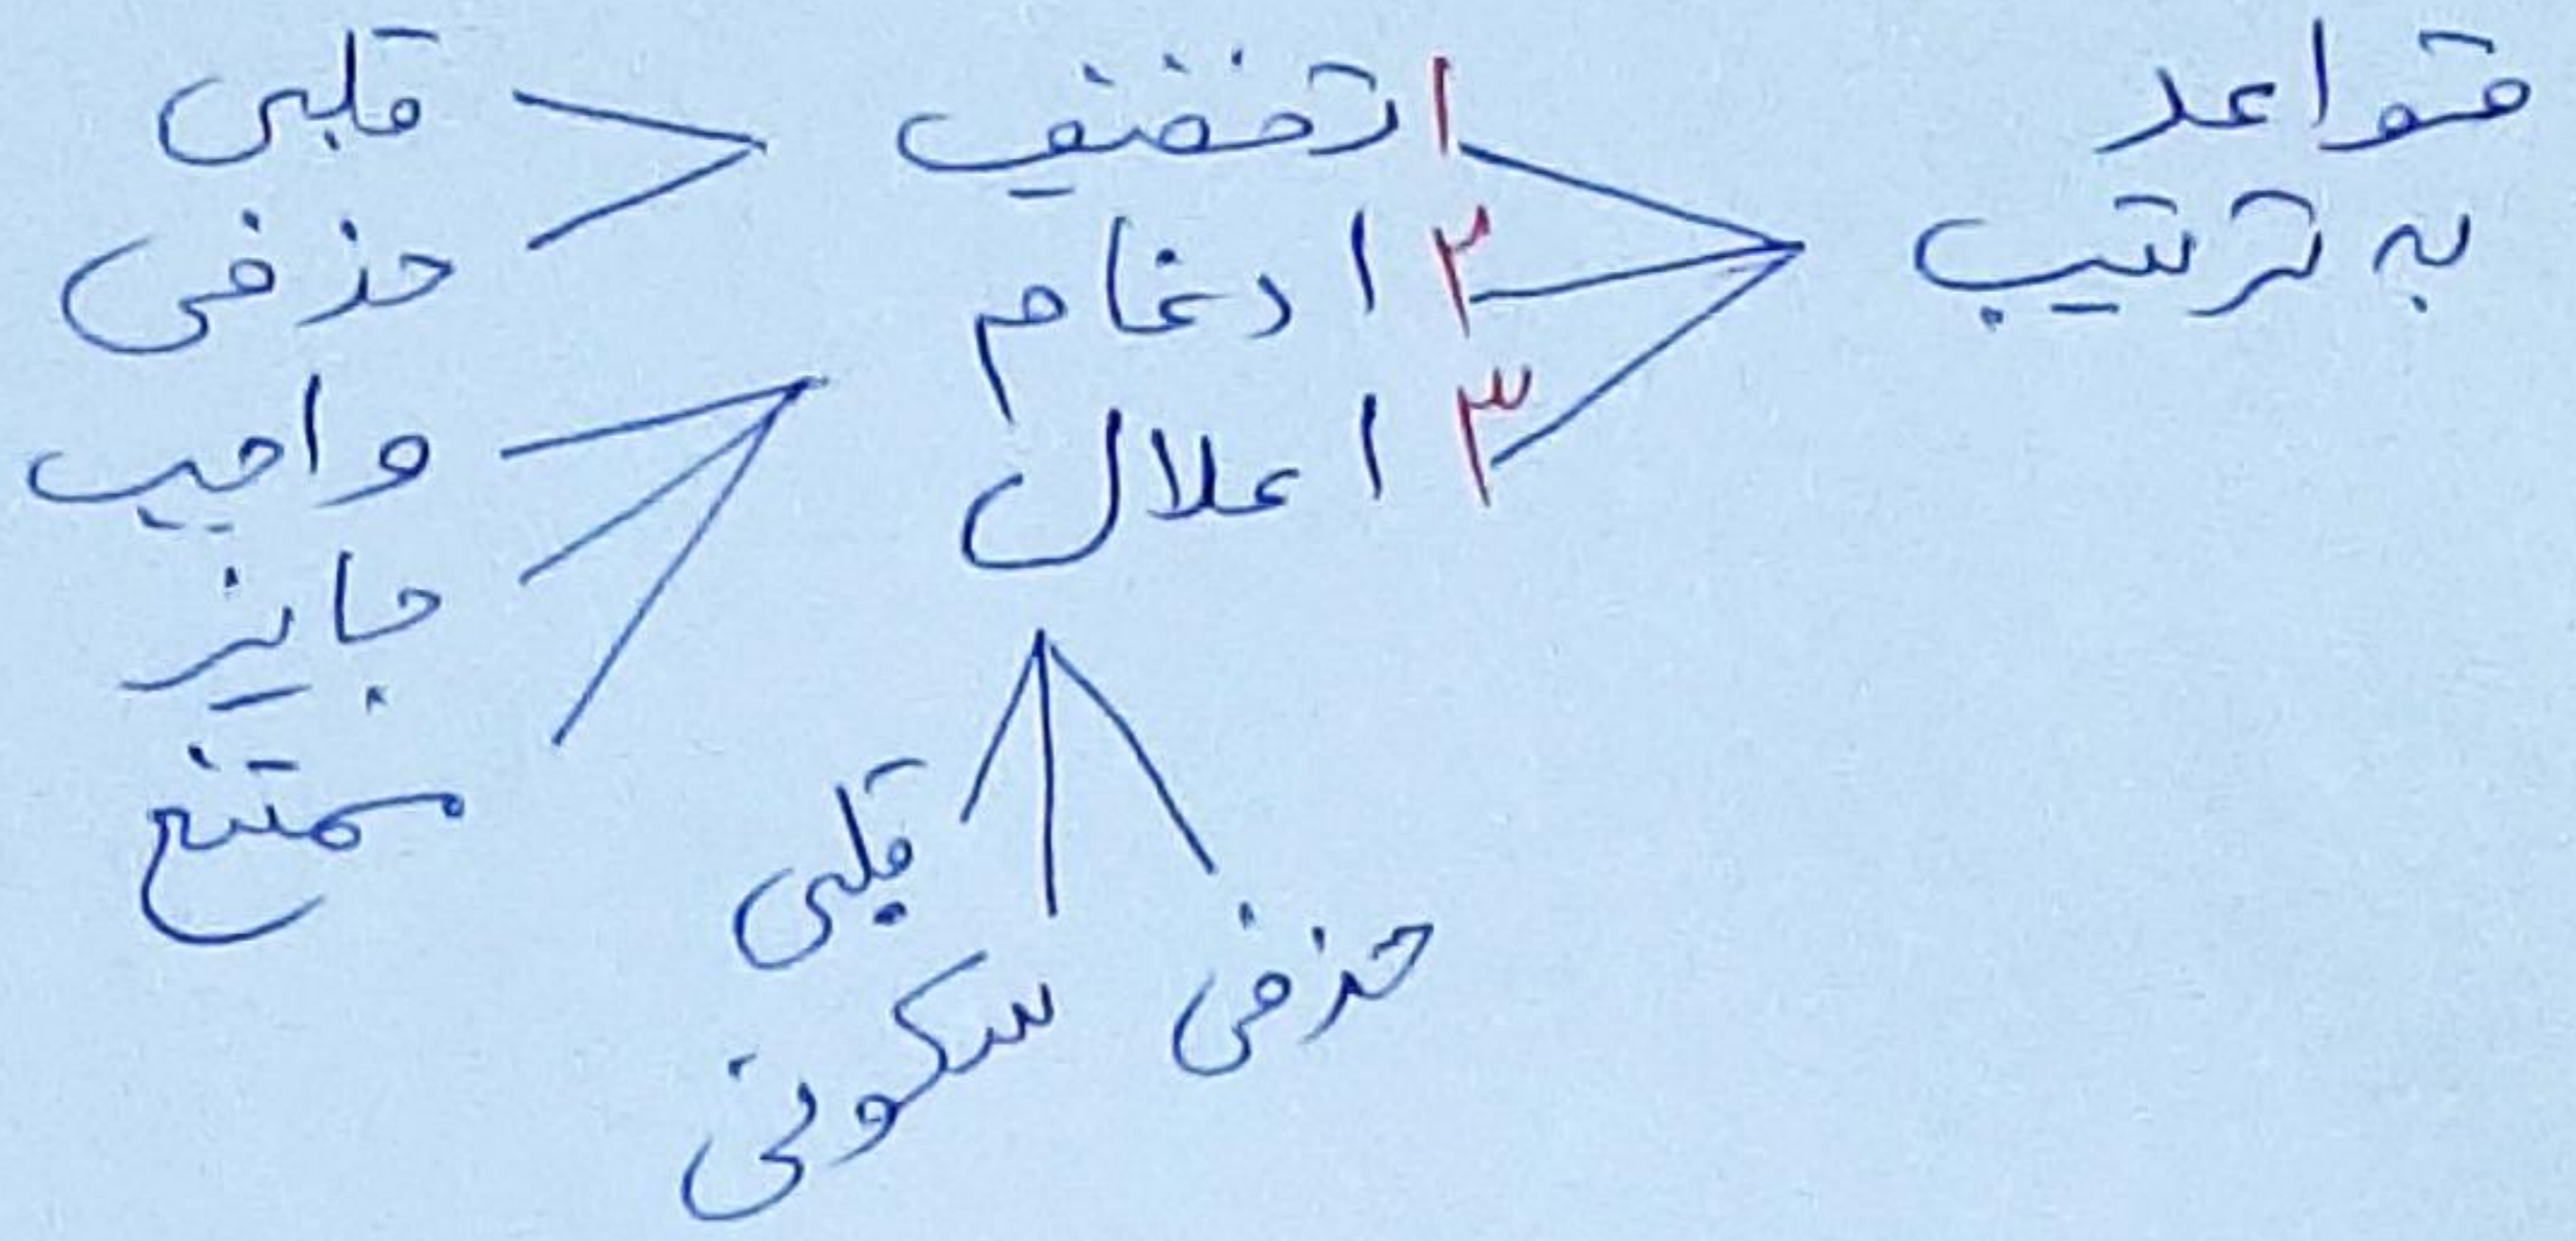 قواعد
به ترتیب
۱ تخفیف
۲ ادغام
۳ اعلال
قلبی
حذفی
واجب
جایز
ممتنع
حذفی
سکونی
قلبی